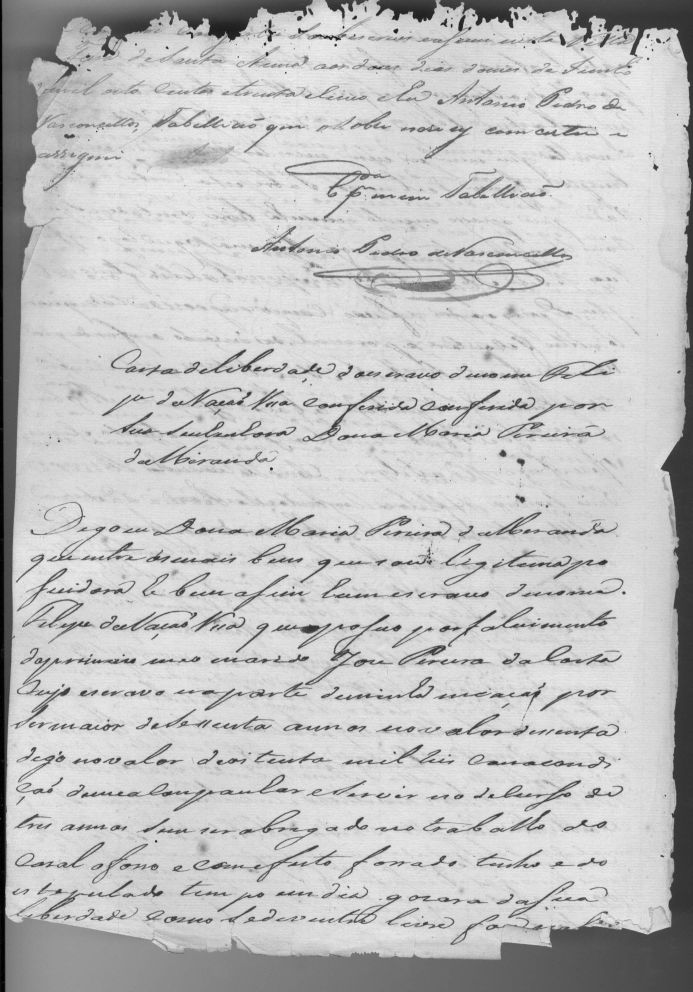 de Santa Anna aos dous dias do mes de Junho
de mil oito centos etrinta ecinco eEu Antonio Pedro de
Vasconcellos, Tabellião que o sobre escrevy comcertei e
assignei
Cpr. mim Tabellião
Antonio Pedro deVasconcellos
Carta deliberdade doescravo denome Feli
pe deNação Ussa conferida conferida por
sua Senhora Dona Maria Pereira
deMiranda
Digo eu Dona Maria Pereira deMiranda
que entre osmais bens que sou legitima po
ssuidora he bem asim hum escravo denome
Felipe deNação Ussa que oposuo por falecimento
deprimeiro meo marido Joze Pereira daCosta
Cujo escravo na parte deminha meação por
Ser maior desessenta annos no valor desenta
digo no valor de oitenta mil reis Com acondi
ção deme aCompanhar eServir no deCurso de
tres annos Sem ser obrigado no traballo do
Casal oforro e comefeito forrado tenho e do
estepulado tempo em dia gozara daSua
liberdade Como Sedeventre livre